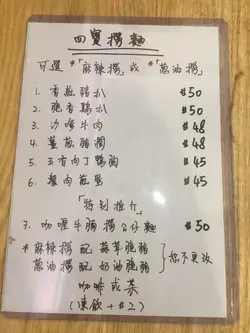 四寶撈麵
可選 *「麻辣撈」或 *「葱油撈」
1. 香煎豬扒 $50
2. 脆香雞扒 $50
3. 沙嗲牛肉 $48
4. 薑葱豬膶 $48
5. 五香肉丁鴨胸 $45
6. 蟹肉 $45
「特別推介」
7. 咖喱牛腩撈公仔麵 $50
*麻辣撈 配 蒜茸脆豬
葱油撈 配 奶油脆豬
恕不更改
咖啡或茶
(凍飲 + $2)